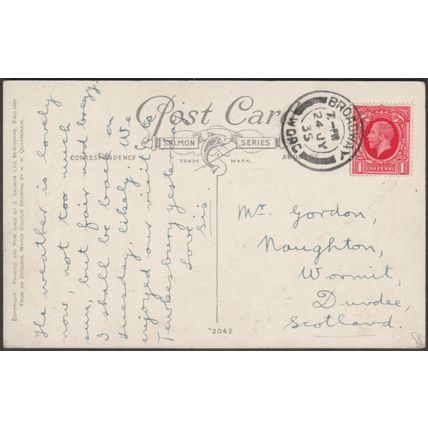 Post Card
CORRESPONDENCE
SALMON SERIES
TRADE MARK.
COPYRIGHT PRINTED AND PUBLISHED BY J. SALMON LTD, SEVENOAKS, ENGLAND
FROM AN ORIGINAL WATER COLOUR DRAWING BY A. R. QUINTON
The weather is lovely
now, not too much
sun, but fair and good breezy.
I shall be back on
Tuesday, likely. We
enjoyed our visit to
Tewkesbury yesterday
Love
Sis.
BROADWAY
7-PM
24 JY
35
WORC
1 1
ONE PENNY
Mr. Gordon,
Naughton,
Wormit,
Dundee,
Scotland.
*2042